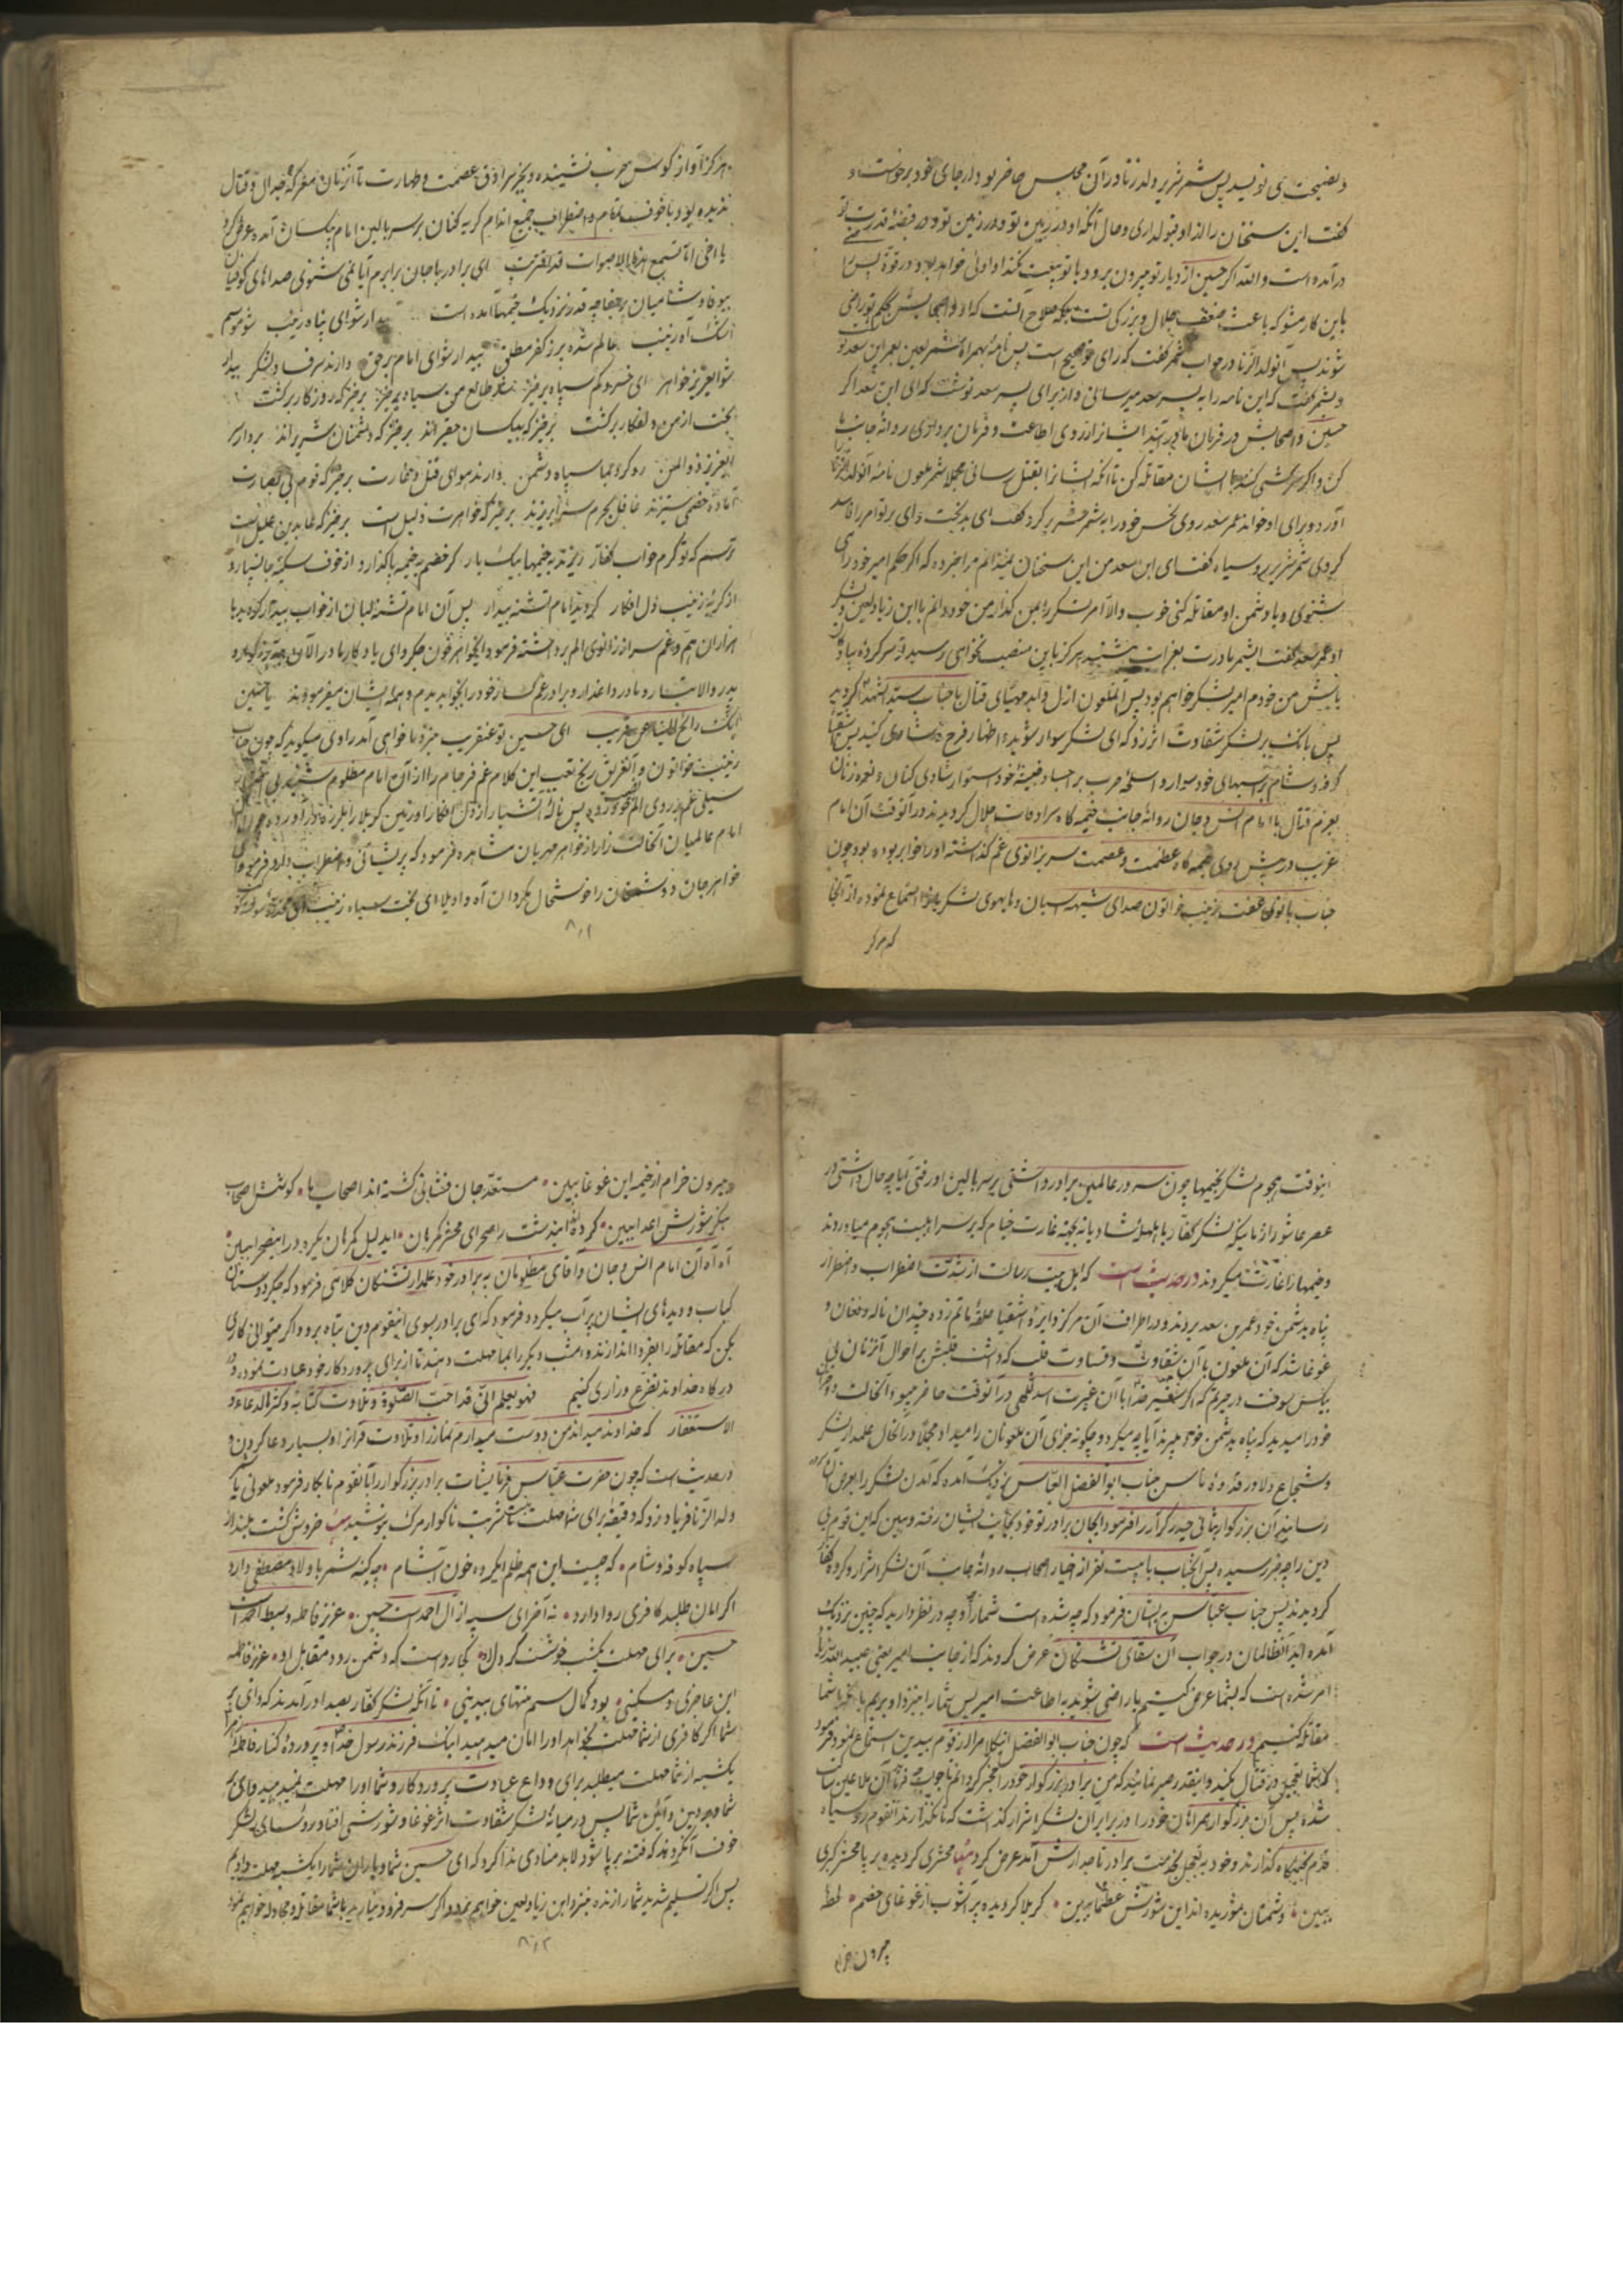 و نصیحت می نویسد پس شمر شریر ولد زنا در آن مجلس حاضر بود از جای خود برخواست و
گفت این سخنان را از او قبول داری و حال آنکه او در زمین تو و در قبضه قدرت تو
در آمده است والله اگر حسین از دیار تو بیرون برود با تو بیعت نکند او اولی خواهد بود در قوة پس
باین کار مشو که باعث ضعف جلال و بزرگی تست بلکه صلاح آنست که او و اصحابش بحکم تو راضی
شوند پس آنولد الزنا در جواب شمر گفت که رای تو صحیح است پس نامه بهمراه شمر لعین بعمر ابن سعد نوشت
و بشمر گفت که این نامه را به پسر سعد میرسانی و از برای پسر سعد نوشت که ای ابن سعد اگر
حسین و اصحابش در فرمان ما در آیند ایشانرا از روی اطاعت و فرمان برداری روانه جانب ما
کن و اگر سرکشی کنند با ایشان مقاتله کن تا آنکه ایشانرا بقتل رسانی مجملا شمر ملعون نامه آنولد الزنا را
آورد و برای او خواند عمر سعد روی نحس خود را به شمر کرد و گفت ای بدبخت وای بر تو امر را فاسد
کردی شمر شریر رو سیاه گفت ای ابن سعد من این سخنان نمیدانم مرا خبر ده که اگر حکم امیر خود را می
شنوی و با دشمن او مقاتله کنی خوب والا امر لشکر را بمن گذار من خود دانم با ابن زیاد لعین و لشکر
او عمر سعد گفت ایشمر مادرت بعزایت نشیند هرگز باین منصب نخواهی رسید تو سرکرده پیاده
باش من خودم امیر لشکر خواهم بود پس آن ملعون ازل و ابد مهیای قتال با جناب سید الشهدا گردید
پس بانک بر لشکر شقاوت اثر زد که ای لشکر سوار شوید و اظهار فرح و شادی کنید پس اشقیا
کوفه و شام بر اسبهای خود سوار و اسلحه حرب بر اجساد خبیثه خود استوار شادی کنان و نعره زنان
بعزم قتال با امام انس و جان روانه جانب خیمه گاه سرادقات جلال گردیدند در آنوقت آن امام
غریب در پیش روی خیمه گاه عظمت و عصمت سر بزانوی غم گذاشته او را خواب ربوده بود چون
جناب بانوی عفت زینب خواتون صدای شیهه اسبان و هایهوی لشکریانرا استماع نموده از آنجا
که هرگز
هرگز آواز کوس حرب نشنیده و بجز سرادق عصمت و طهارت تا آنزمان معرکه جدال و قتال
ندیده بود با خوف تمام و اضطراب جمیع اندام گریه کنان بر سر بالین امام بیکسان آمده عرض کرد
یا اخی اما تسمع هذه الاصوات قد اقتربت ای برادر با جان برابرم آیا نمی شنوی صداهای کوفیان
بیوفا و شامیان پر جفا چه قدر نزدیک خیمها آمده است بیدار شو ای پناه زینب
اشک آه زینب عالم شده پر ز کفر مطلق بیدار شو ای امام بر حق دارند سرفساد لشکر بیدار
شو ایعزیز خواهر ای خسرو کم سپاه برخیز طالع من سیاه برخیز برخیز که روزگار برگشت
بخت از من دلفکار برگشت برخیز که بیکسان حقیراند برخیز که دشمنان شریراند بردار سر
ایعزیز ذوالمن رو کرده بما سپاه دشمن دارند هوای قتل و غارت برخیز که قوم بی بصارت
آماده خصمی ستیزند غافل بحرم سرا بریزند برخیز که خواهرت ذلیل است برخیز که عابدین علیل است
ترسم که تو گرم خواب کفار ریزند به خیمها بیک بار گر خصم بخیمه پا گذارد از خوف سکینه جان سپارد
از گریه زینب دل افکار گردید امام تشنه بیدار پس آن امام تشنه لبان از خواب بیدار گردید با
هزاران هم و غم سر از زانوی الم برداشته فرمود ایخواهر خون جگر وای یادگار مادر الآن جد بزرگوار و
پدر والاتبار و مادر داغدار و برادر غمگسار خود را بخواب دیدم و همه ایشان میفرمودند یا حسین
انک رائح الینا عن قریب ای حسین تو عنقریب نزد ما خواهی آمد راوی میگوید که چون جناب
زینب خواتون و الغریق رنج تعب این کلام غم فرجام را از آن امام مظلوم شنید
سیلی غم بر روی الم خود زد پس ناله آتشبار از دل افکار او زمین کربلا را بلرزه در آورده
امام عالمیان آنحالت زار از خواهر مهربان مشاهده فرمود که پریشانی و اضطراب دارد فرمود ای
خواهر جان دشمنان را خوشحال مگردان آه و اویلا ای بخت سیاه زینب
۸۰۱
اینوقت هجوم لشکر بخیمها چون سرور عالمین برادر داشتی بر سر بالین او رفتی آیا چه حال داشتی در
عصر عاشورا زمانیکه لشکر کفار با طبل شادیانه بجهة غارت خیام که بر سر اهلبیت هجوم میاوردند
و خیمها را غارت میکردند در حدیث است که اهل بیت رسالت از شدت اضطراب و اضطرار
پناه بدشمن خود عمر بن سعد بردند و در اطراف آن مرکز دایره اشقیا حلقه ماتم زده چندان ناله و فغان و
غوغا شد که آن ملعون با آن شقاوت و قساوت قلب که داشت قلبش بر احوال آنزنان بی
بیکس سوخت در حیرتم که اگر پیغمبر خدا با آن غیرت اسد اللهی در آنوقت حاضر میبود و آنحالت
خود را میدید که پناه بدشمن خود میبرند آیا چه میکرد و چگونه جزای آن ملعونان را میداد مجملا در آنحال علمدار لشکر
و شجاع دلاور قدوه ناس جناب ابوالفضل العباس نزدیک آمده که آمدن لشکر را بعرض
رسانید آن بزرگوار بثانی حیدر کرار را فرمود ایجان برادر تو خود بجانب ایشان رفته و ببین که این قوم بی
دین را چه خبر رسیده پس آنجناب با بیست نفر از خیار اصحاب روانه جانب آن لشکر اشرار و گروه کفار
گردیدند پس جناب عباس بایشان فرمود که چه شده است شما را و چه در نظر دارید که چنین نزدیک
آمده اید آنظالمان در جواب آن سقای تشنگان عرض کردند که از جانب امیر یعنی عبید الله زیاد
امر شده است که بشما عرض کنیم یا راضی شوید به اطاعت امیر پس شما را نزد او بریم یا آنکه با شما
مقاتله کنیم در حدیث است که چون جناب ابوالفضل اینکلام را از قوم بیدین استماع نمود فرمود
که شما تعجیل در قتال نکنید و اینقدر صبر نمائید که من برادر بزرگوار خود را مخبر گردانم
شده پس آن بزرگوار همراهان خود را در برابر آن لشکر اشرار گذاشت که نگذارند آنقوم رو سیاه
قدم بخیمه گاه گذارند و خود به تعجیل بخدمت برادر تاجدارش آمد عرض کرد محشری گردیده بر پا محشر کبری
ببین دشمنان شوریده اند این شورش عظما ببین کربلا گردیده پر آشوب از غوغای خصم لحظه
بیرون خرام
بیرون خرام از خیمه این غوغا ببین مستعد جان فشانی گشته اند اصحاب ما
شورش اعدا ببین کرده اند این دشت را صحرای محشر گمرهان ایدلیل گمرهان
آه آه آن امام انس و جان و آقای مظلومان به برادر خود علمدار تشنگان کلامی فرمود که جگر دوستان
کباب و دیدهای ایشان پر آب میگردد فرمود که ای برادر بسوی اینقوم دین تباه برو و اگر میتوانی کاری
بکن که مقاتله را بفردا اندازند و امشب دیگر را بما مهلت دهند تا از برای پروردگار خود عبادت نموده و در
درگاه خداوند تضرع و زاری کنیم فهو یعلم انی قد احب الصلوة و تلاوت کتابه و کثرة الدعاء و
الاستغفار که خداوند میداند من دوست میدارم نماز را و تلاوت قرآنرا و بسیار دعا کردن و
در حدیث است که چون حضرت عباس فرمایشات برادر بزرگوار را بآنقوم نابکار فرمود ملعونی
ولد الزنا فریاد زد که دقیقه برای شما مهلت نیست تا شربت ناگوار مرگ بنوشید خروش گشت بلند از
سپاه کوفه و شام که چیست این همه ظلم ایگروه خون آشام چه کینه شمر باولاد مصطفی دارد
اگر امان طلبد کافری روا دارد نه آخر ای سپه از آل احمد است حسین عزیز فاطمه و سبط احمد است
حسین برای مهلت یکشب کجا رواست که دشمن رود مقابل او عزیز فاطمه
این عاجزی و مسکینی بود کمال ستم منتهای بیدینی تا آنکه لشکر کفار بصدا در آمدند که وای بر
شما اگر کافری از شما مهلت بخواهد او را امان میدهید اینک فرزند رسول خدا و پرورده کنار فاطمه زهرا
یکشبه از شما مهلت میطلبد برای وداع عبادت پروردگار و شما او را مهلت نمیدهید وای بر
شما و بر دین و آئین شما پس در میانه لشکر شقاوت اثر غوغا و شورشی افتاد رؤسای لشکر
خوف آن کردند که فتنه بر پا شود لابد منادی ندا کرد که ای حسین شما و یاران شما را یکشب مهلت دادیم
پس اگر تسلیم شدید شما را زنده نزد ابن زیاد لعین خواهیم برد و اگر سر فرود نیارید با شما مقاتله و مجادله خواهیم نمود
۸۰۲